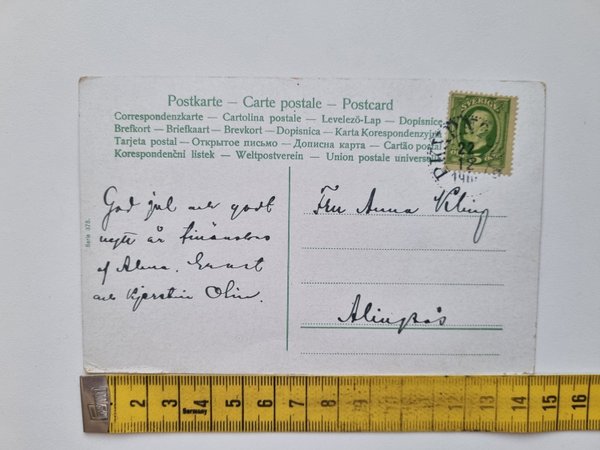 Postkarte — Carte postale — Postcard
Correspondenzkarte — Cartolina postale — Levelező-Lap — Dopisnice
Brefkort — Briefkaart — Brevkort — Dopisnica — Karta Korespondenzyjna
Tarjeta postal — Открытое письмо — Дописна карта — Cartão postal
Korespondenční listek — Weltpostverein — Union postale universelle
SVERIGE
22
12
God jul och godt
nytt år tillönskas
af Alma, Ernst
och Kjerstin Olin.
Fru Anna Kling
Alingsås
Serie 375.
2 3 4 5 6 7 8 9 10 11 12 13 14 15 16
Germany